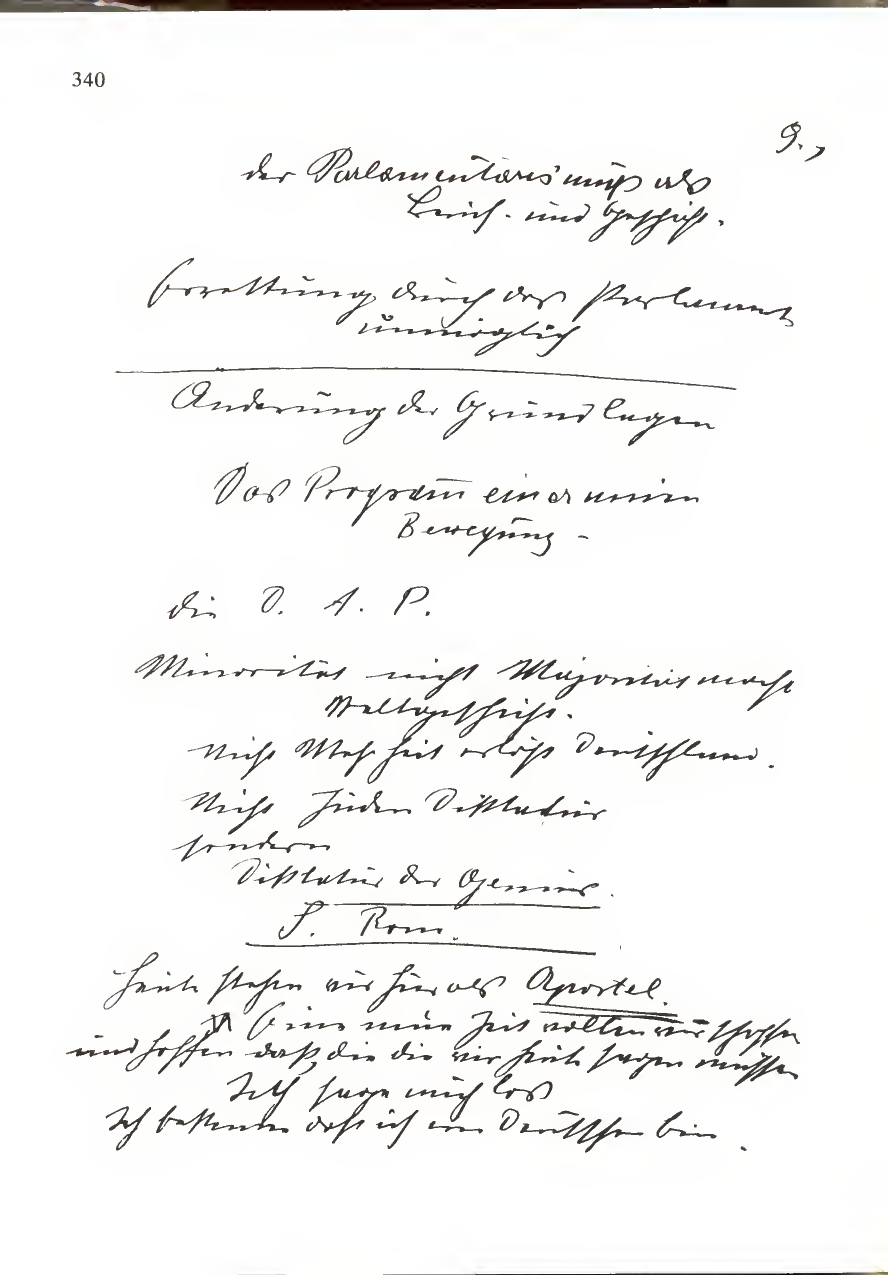 340
9.,
der Parlamentarismuß als
und Geschäft.
Errettung durch das Parlament
unmöglich
Änderung der Grundlagen
Das Programm einer neuen
Bewegung –
die D. A. P.
Minorität nicht Majorität macht
Weltgeschichte.
Nicht Mehrheit erlöst Deutschland.
Nicht Juden Diktatur
sondern
Diktatur des Genius.
S. Rom.
Heute stehen wir hier als Apostel.
Eine neue Zeit wollen wir schaffen
und hoffen daß, die die wir heute sagen müssen
Ich sage mich los
Ich bekenne daß ich ein Deutscher bin.